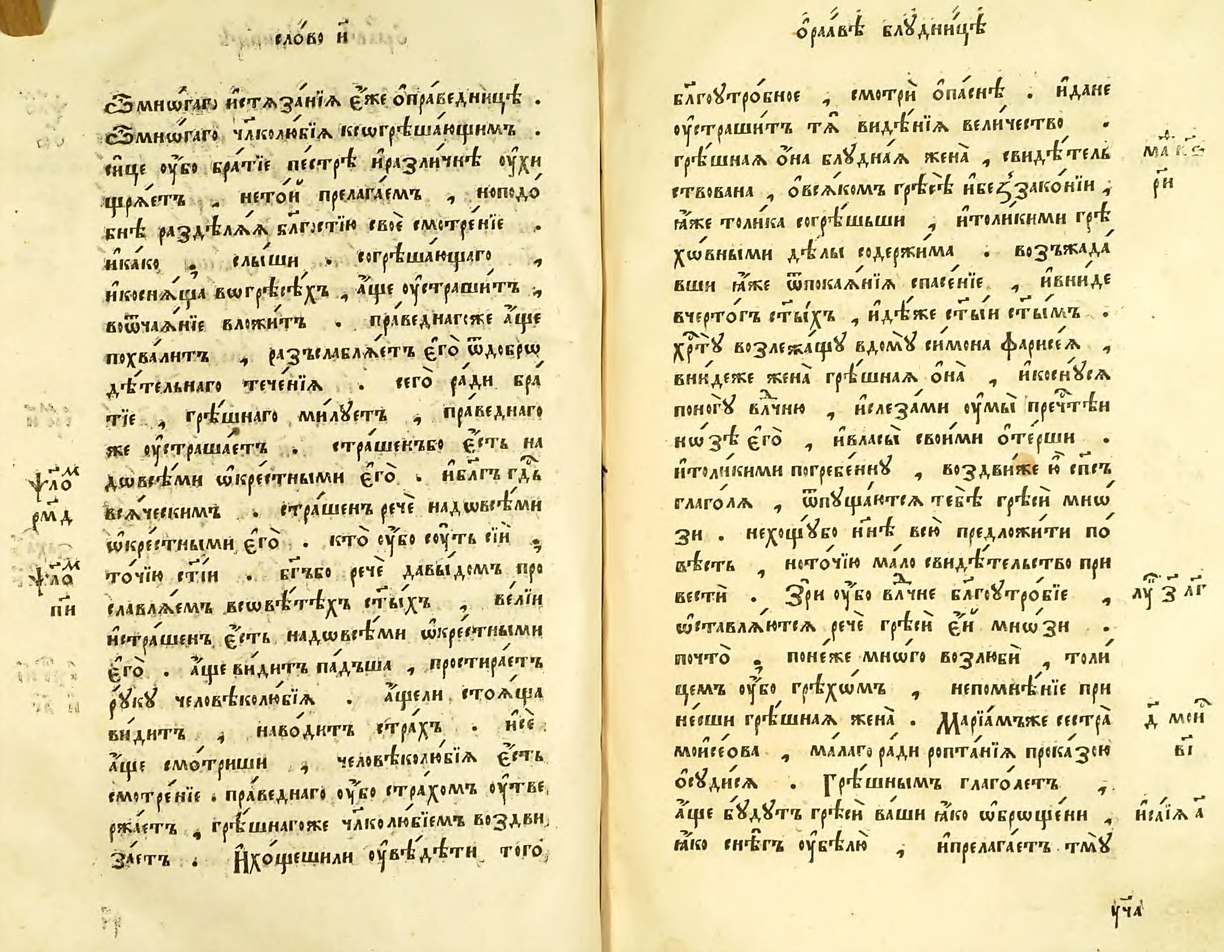 сло́во и҃
Ѿмнѡ́гагѡ и҆стѧза́нїѧ є҆́же ѡ҆пра́ведницѣ .
Ѿмнѡ́гаго чл҃колю́бїѧ ксѡгрѣша́ющимъ .
си́це ᲂу҆̀бо бра́тїе пе́стрѣ и҆разли́чнѣ ᲂу҆хи
щрѧ́етъ , нето́й прелага́емъ , нопода́
бнѣ раздѣлѧ́ѧ бл҃гостїю своѐ смотре́нїе .
и҆ка́ко . слы́ши . согрѣша́ющаго ,
и҆коснѧ́ща вогрѣсѣ́хъ , а҆́ще ᲂу҆страши́тъ ,
воѿча́ѧнїе вложи́тъ . пра́веднагоже а҆́ще
похва́литъ , разъслаблѧ́етъ є҆го̀ ѿдобрѡ
дѣ́тельнаго тече́нїѧ . сего̀ ра́ди бра́
тїе , грѣ́шнаго ми́луетъ , пра́веднаго
же ᲂу҆страша́етъ . стра́шенъбо є҆́сть на
дѡвсѣ́ми ѡ҆кре́стными є҆гѡ̀ . и҆бл҃гъ гд҇ь
всѧ́ческимъ . стра́шенъ речѐ надѡвсѣ́ми
ѡ҆кре́стными є҆гѡ̀ . кто̀ ᲂу҆́бо сꙋ́ть сі́и ;
то́чїю ст҃і́и . бг҃ъбо речѐ давы́домъ про
славлѧ́емъ всовѣ́тѣхъ ст҃ы́хъ , ве́лїи
и҆стра́шенъ є҆́сть надѡвсѣ́ми ѡ҆кре́стными
є҆гѡ̀ . а҆́ще ви́дитъ па́дъша , простира́етъ
рꙋ́кꙋ человѣколю́бїѧ . а҆́щели стоѧ́ща
ви́дитъ , наво́дитъ стра́хъ . и҆сѐ
а҆́ще смо́триши , человѣколю́бїѧ є҆́сть
смотре́нїе . пра́веднаго ᲂу҆́бо стра́хомъ ᲂу҆тве
ржа́етъ , грѣ́шнагоже чл҃колю́бїемъ воздви
за́етъ . И҆хо́щешили ᲂу҆вѣ́дѣти того̀
ѱло́м
рм҃д
ѱло́м
пи҃
ѡ҆раа́вѣ блꙋдни́цѣ
бл҃гоꙋтро́бное , смотрѝ ѻ҆па́снѣ . и҆дане
ᲂу҆страши́тъ тѧ̀ видѣ́нїѧ вели́чество .
грѣ́шнаѧ ѻ҆́на блꙋ́днаѧ жена̀ , свидѣ́тель
ствована , ѻ҆всѧ́комъ грѣсѣ̀ и҆беззако́нїи ,
ꙗ҆́же толи́ка согрѣ́шьши , и҆толи́кими грѣ
хѡ́вными дѣ́лы содержи́ма . возъжада́
вши ꙗ҆́же ѿпокаѧ́нїѧ спасе́нїе , и҆вни́де
вчерто́гъ ст҃ы́хъ , и҆дѣ́же ст҃ы́и ст҃ы́мъ .
хрⷭ҇тꙋ̀ возлежа́щꙋ вдомꙋ̀ си́мона фарисе́ѧ ,
вни́деже жена̀ грѣ́шнаѧ ѻ҆на̀ , и҆коснꙋ́сѧ
поно́гꙋ влⷣчню , и҆слеза́ми ᲂу҆мы̀ пречⷭ҇тѣи
но́зѣ є҆гѡ̀ , и҆власы̀ свои́ми ѻ҆те́рши .
и҆толи́кими погребе́ннꙋ , воздви́же ю҆̀ сп҃съ
глаго́лѧ , ѿпꙋща́ютсѧ тебѣ̀ грѣсѝ мно́
зи . нехощꙋ́бо нн҃ѣ всю̀ предложи́ти по́
вѣсть , ното́чїю ма́ло свидѣ́тельство при
вестѝ . Зрѝ ᲂу҆̀бо влⷣчне бл҃гоꙋтро́бїе ,
ѡ҆ставлѧ́ютсѧ речѐ грѣсѝ є҆́й мно́зи .
почто̀ ; поне́же мно́го возлюбѝ , толи́
цемъ ᲂу҆́бо грѣхѡ́мъ , непомнѣ́нїе при
не́сши грѣ́шнаѧ жена̀ . Марїа́мъже сестра̀
моѵсе́ова , ма́лаго ра́ди ропта́нїѧ прока́зою
ѡ҆сꙋди́сѧ . Грѣ́шнымъ глаго́летъ ,
а҆́ще бꙋ́дꙋтъ грѣсѝ ва́ши ꙗ҆́ко ѡ҆брощє́ни ,
ꙗ҆́ко снѣ́гъ ᲂу҆бѣлю̀ , и҆прелага́етъ тмꙋ̀
лꙋ҃ з҃ лг҃
д҃ мои
в҃і
и҆са́їѧ а҃
ꙋ҃ча